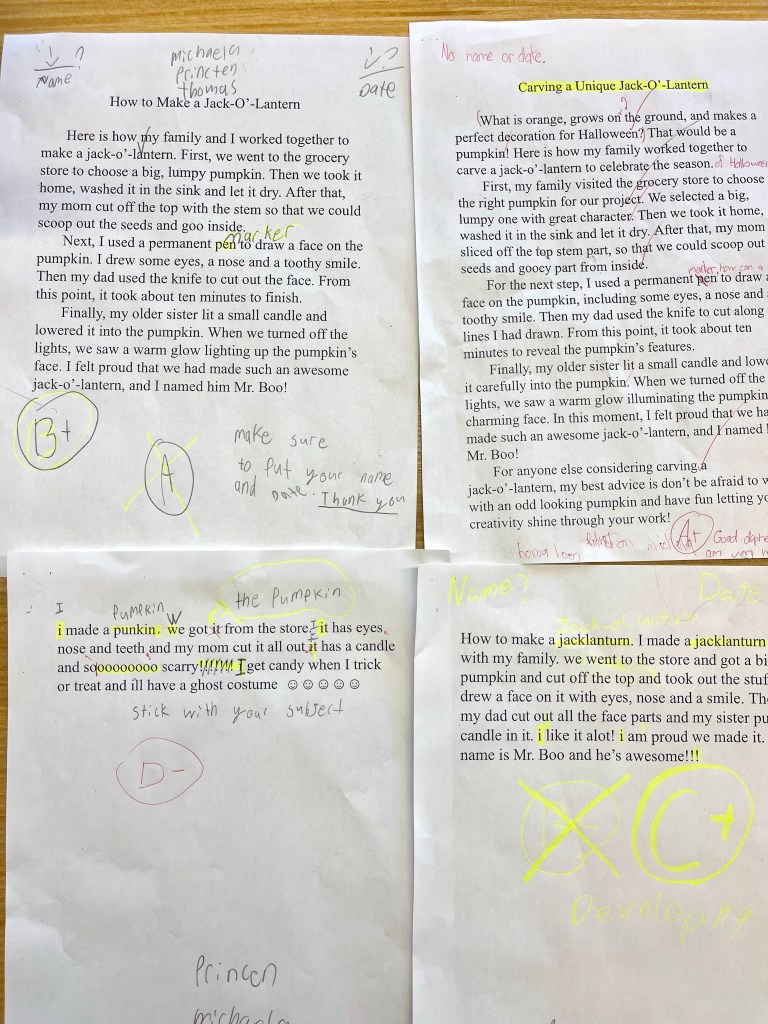 ↓ ?
Name
michaela
Princten
thomas
↓?
Date
How to Make a Jack-O'-Lantern
Here is how my family and I worked together to
make a jack-o'-lantern. First, we went to the grocery
store to choose a big, lumpy pumpkin. Then we took it
home, washed it in the sink and let it dry. After that,
my mom cut off the top with the stem so that we could
scoop out the seeds and goo inside.
marker
Next, I used a permanent pen to draw a face on the
pumpkin. I drew some eyes, a nose and a toothy smile.
Then my dad used the knife to cut out the face. From
this point, it took about ten minutes to finish.
Finally, my older sister lit a small candle and
lowered it into the pumpkin. When we turned off the
lights, we saw a warm glow lighting up the pumpkin's
face. I felt proud that we had made such an awesome
jack-o'-lantern, and I named him Mr. Boo!
B+
A
make sure
to put your name
and Date. Thank you
No name or date.
Carving a Unique Jack-O'-Lantern
?
What is orange, grows on the ground, and makes a
perfect decoration for Halloween? That would be a
pumpkin! Here is how my family worked together to
carve a jack-o'-lantern to celebrate the season. of Halloween
First, my family visited the grocery store to choose
the right pumpkin for our project. We selected a big,
lumpy one with great character. Then we took it home,
washed it in the sink and let it dry. After that, my mom
sliced off the top stem part, so that we could scoop out
seeds and gooey part from inside.
marker, how can a
For the next step, I used a permanent pen to draw a
face on the pumpkin, including some eyes, a nose and
toothy smile. Then my dad used the knife to cut along
lines I had drawn. From this point, it took about ten
minutes to reveal the pumpkin's features.
Finally, my older sister lit a small candle and lowe
it carefully into the pumpkin. When we turned off the
lights, we saw a warm glow illuminating the pumpkin
charming face. In this moment, I felt proud that we ha
made such an awesome jack-o'-lantern, and I named
Mr. Boo!
For anyone else considering carving a
jack-o'-lantern, my best advice is don't be afraid to w
with an odd looking pumpkin and have fun letting yo
creativity shine through your work!
A+
Good
am very
I
Pumpkin
W
the Pumpkin
i made a punkin, we got it from the store, it has eyes,
nose and teeth and my mom cut it all out, it has a candle
and sooooooooo scarry!!!!!!! I get candy when I trick
or treat and ill have a ghost costume ☺☺☺☺☺
stick with your subject
D-
Princen
michaela
Name?
Date
Jack-o-lantern
How to make a jacklanturn. I made a jacklanturn
with my family. we went to the store and got a bi
pumpkin and cut off the top and took out the stuf
drew a face on it with eyes, nose and a smile. Th
my dad cut out all the face parts and my sister pu
candle in it. i like it alot! i am proud we made it.
name is Mr. Boo and he's awesome!!!
C+
Developing